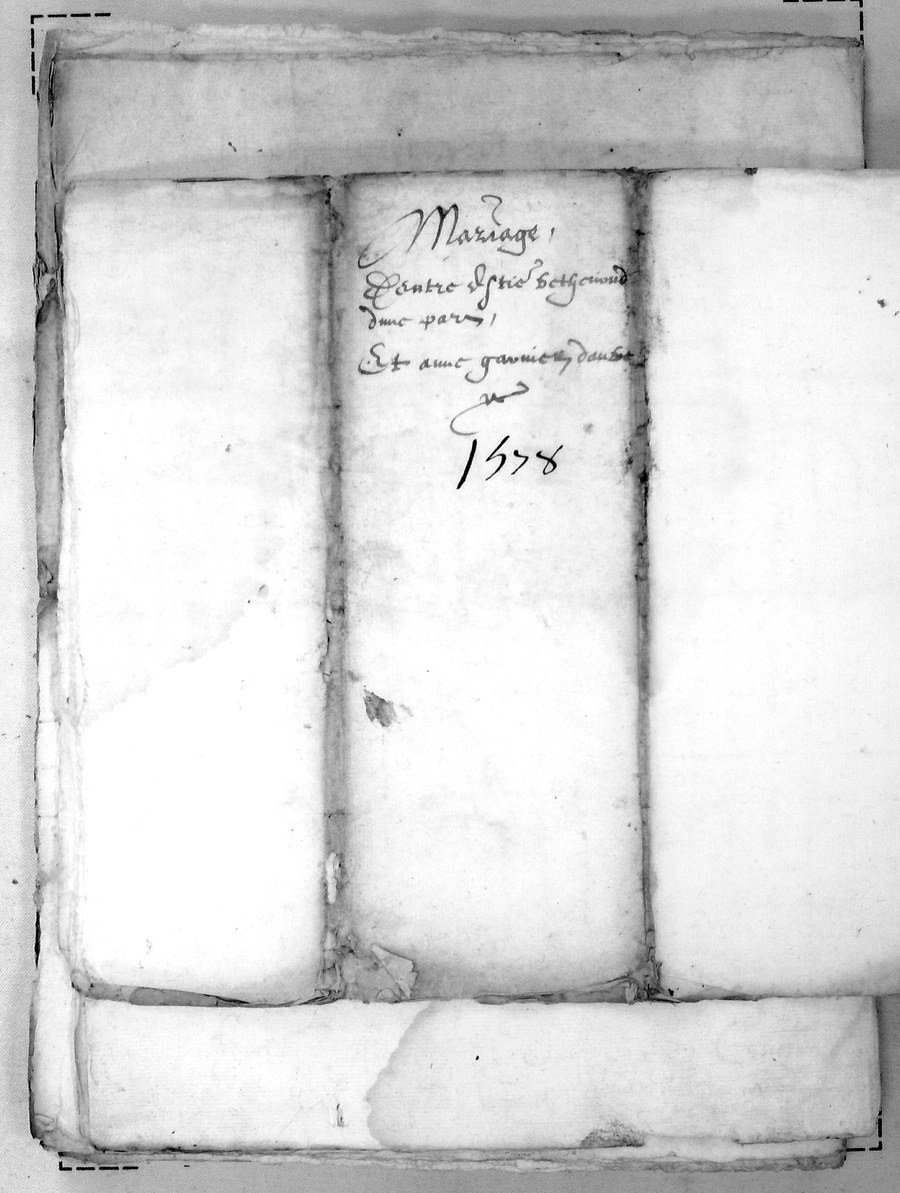 Mariage,
Dentre Estie bethenoud
dune part,
Et anne garnier dautre
1578